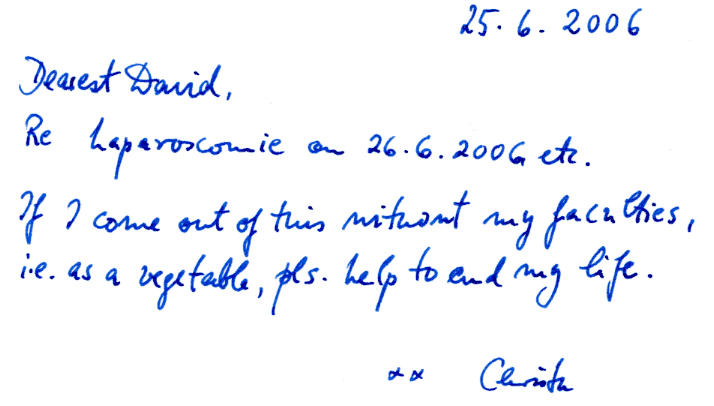 25.6.2006
Dearest David,
Re Laparoscomie on 26.6.2006 etc.
If I come out of this without my faculties,
i.e. as a vegetable, pls. help to end my life.
xx Christa